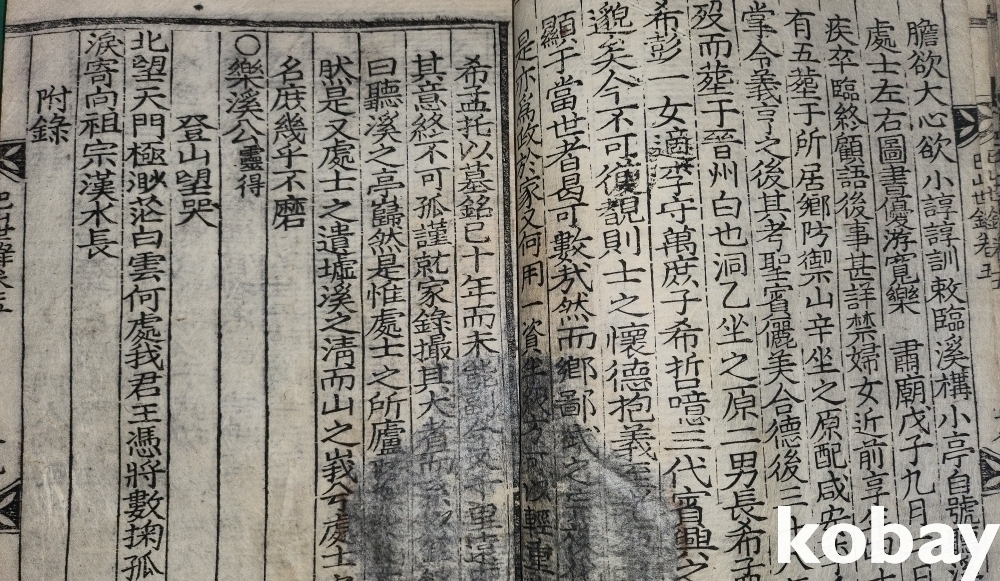 膽欲大心欲小諄諄訓敕臨溪構小亭自號聽溪
處士左右圖書優游寬樂 肅廟戊子九月
疾卒臨終顧語後事甚詳禁婦女近前享年
有五葬于所居鄉防禦山辛坐之原配咸安
掌令義亨之後其考聖賓儷美合德後三
歿而葬于晉州白也洞乙坐之原二男長希孟
希彭一女適李守萬庶子希哲噫三代賓興之
邈矣今不可復覩則士之懷德抱義至
顯于當世者曷可數哉然而鄉鄙
是亦爲政於家又何用一資半
輕重
希孟托以墓銘已十年而未能副今又千里遠
其意終不可孤謹就家錄撮其大者而
曰聽溪之亭巋然是惟處士之所廬
然是又處士之遺墟溪之清而山之峩兮處士
名庶幾乎不磨
○樂溪公靈得
登山望哭
北望天門極渺茫白雲何處我君王憑將數掬孤
淚寄向祖宗漢水長
附錄
kobay